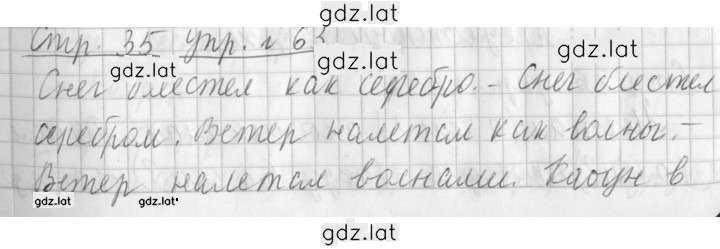 gdz.lat
Стр. 35 упр. № 63
gdz.lat
gdz.lat
Снег блестел как серебро. - Снег блестел
серебром. Ветер налетал как волны. -
Ветер налетал волнами. Каоун в
gdz.lat gdz.lat
gdz.lat